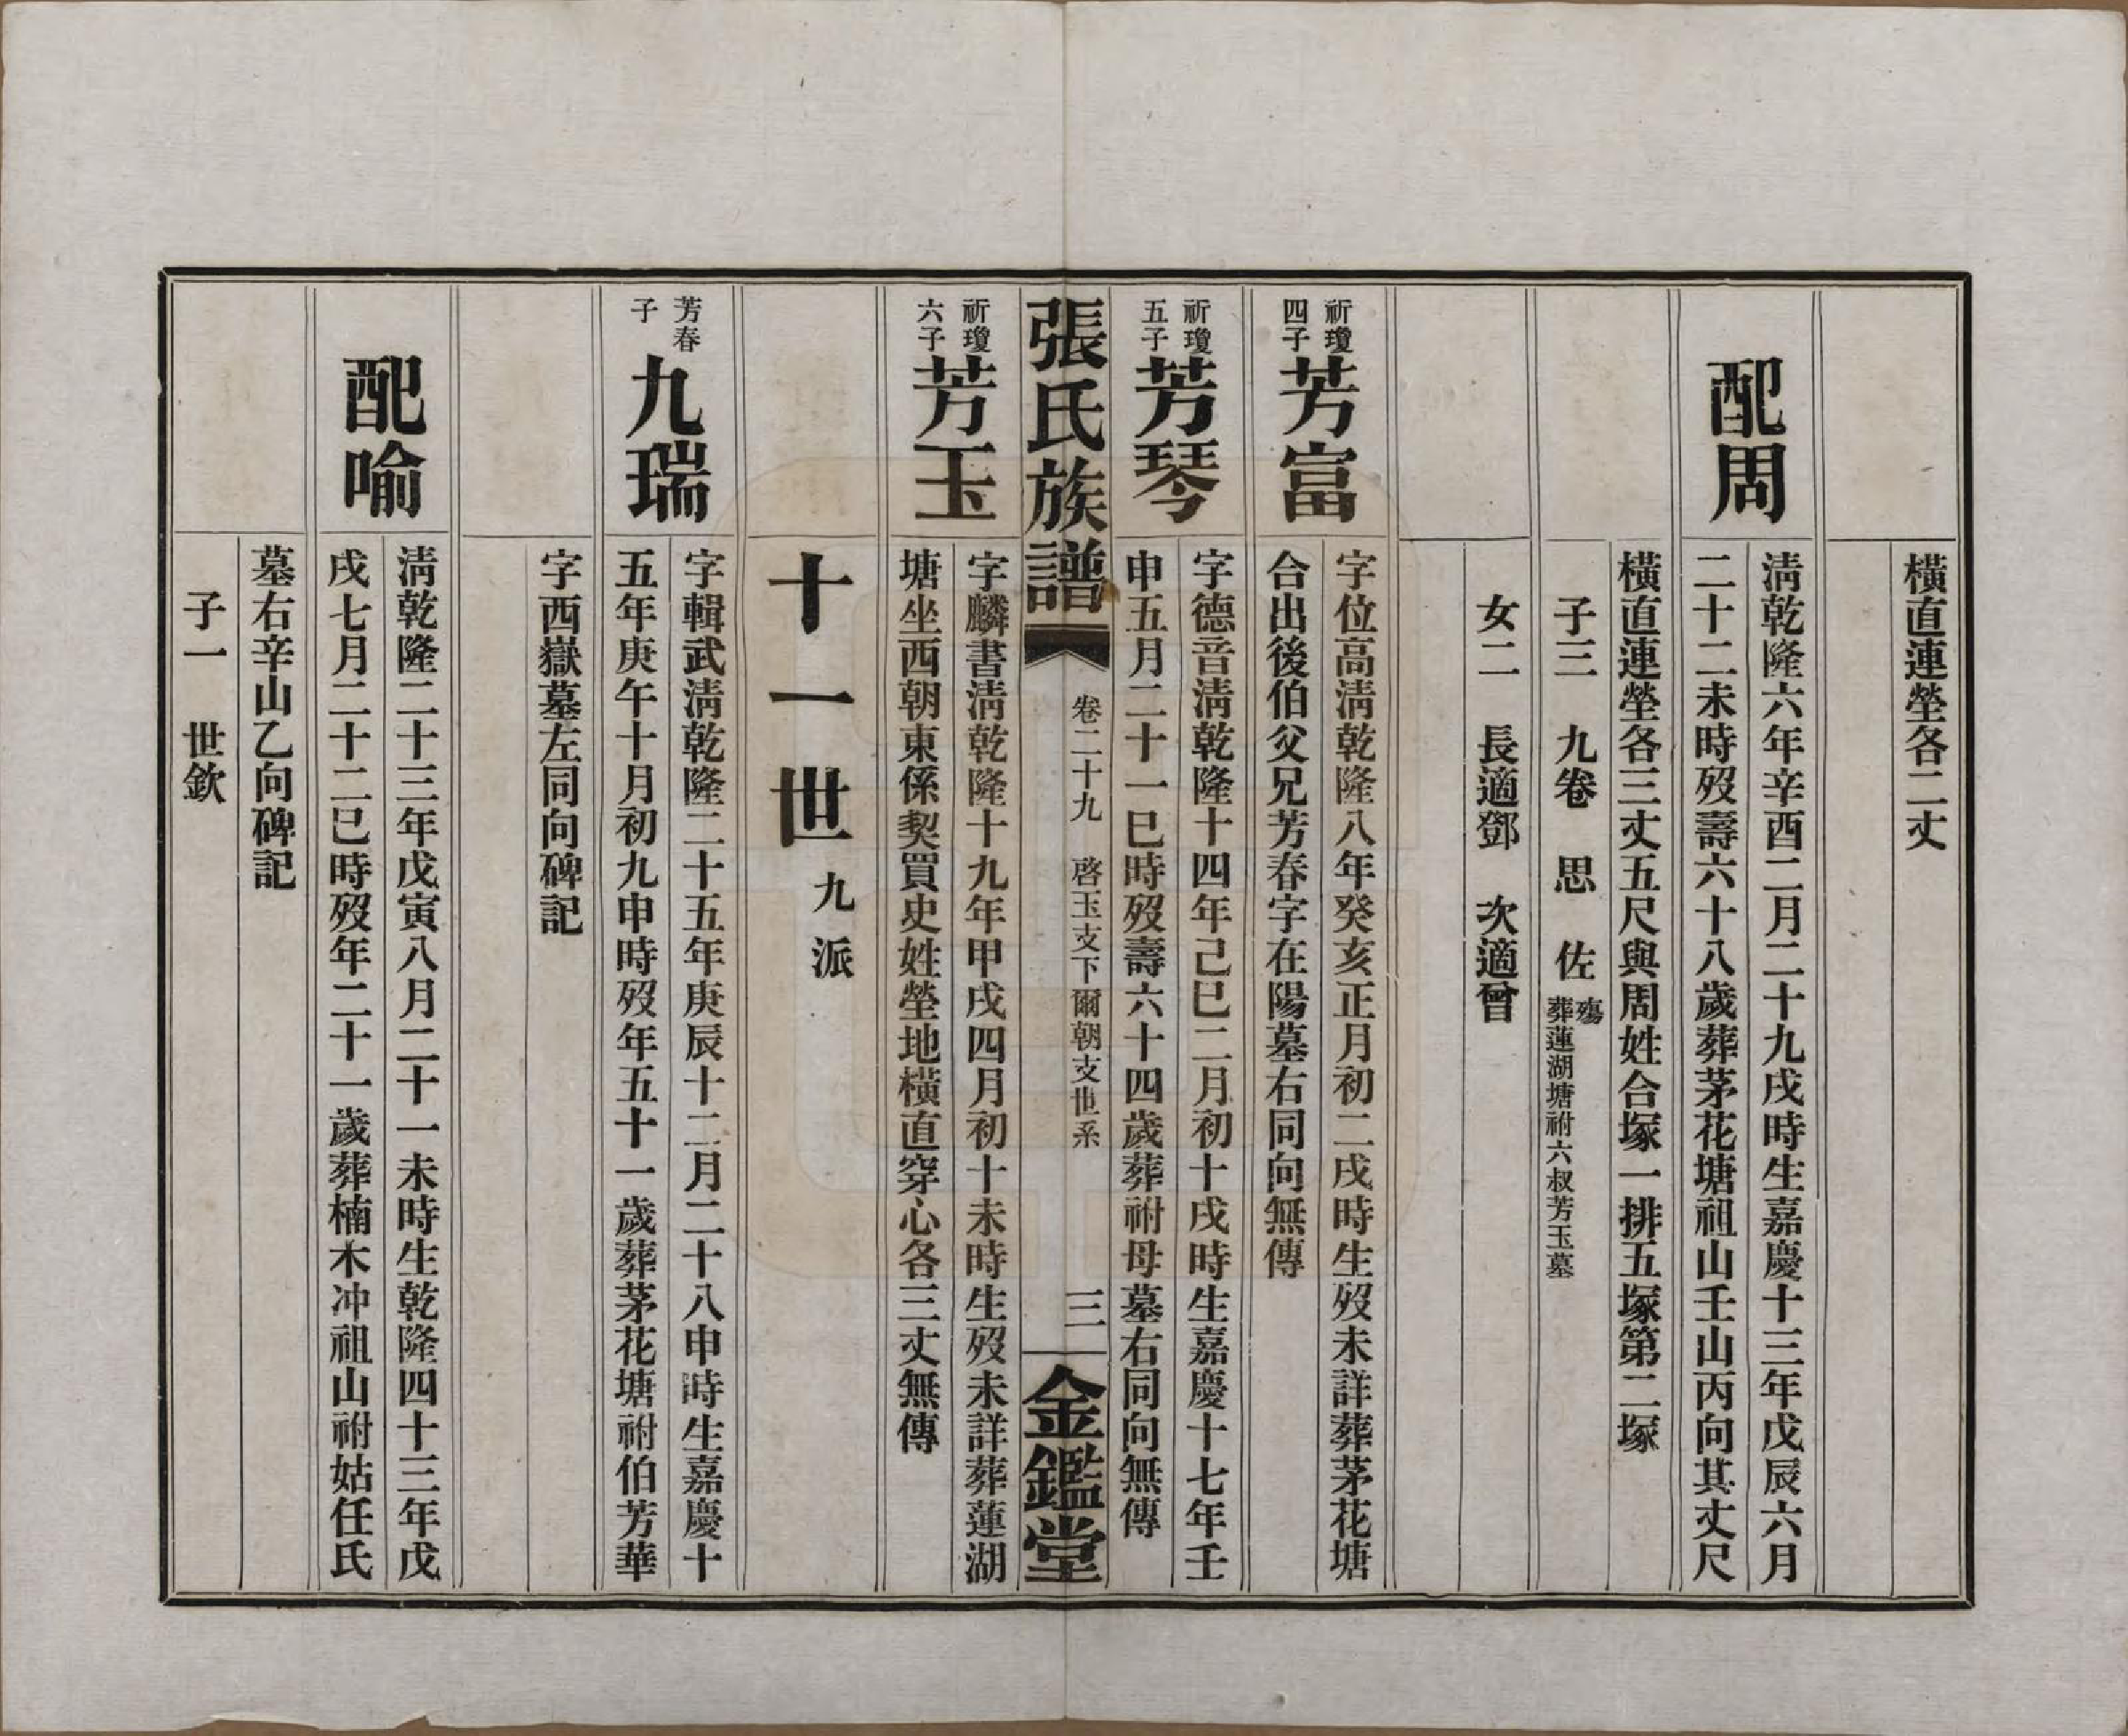 橫直連塋各二丈
配周
淸乾隆六年辛酉二月二十九戌時生嘉慶十三年戊辰六月
二十二未時歿壽六十八歲葬茅花塘祖山壬山丙向其丈尺
橫直連塋各三丈五尺與周姓合塚一排五塚第二塚
子三　九卷　思　佐
殤
葬蓮湖塘祔六叔芳玉墓
女二　長適鄧　次適曾
祈瓊
四子
芳富
字位高淸乾隆八年癸亥正月初二戌時生歿未詳葬茅花塘
合出後伯父兄芳春字在陽墓右同向無傳
祈瓊
五子
芳琴
字德音淸乾隆十四年己巳二月初十戌時生嘉慶十七年壬
申五月二十一巳時歿壽六十四歲葬祔母墓右同向無傳
張氏族譜
卷二十九　啓玉支下爾朝支世系
三
金鑑堂
祈瓊
六子
芳玉
字麟書淸乾隆十九年甲戌四月初十未時生歿未詳葬蓮湖
塘坐西朝東係契買史姓塋地橫直穿心各三丈無傳
十一世　九派
芳春
子
九瑞
字輯武淸乾隆二十五年庚辰十二月二十八申時生嘉慶十
五年庚午十月初九申時歿年五十一歲葬茅花塘祔伯芳華
字西嶽墓左同向碑記
配喻
淸乾隆二十三年戊寅八月二十一未時生乾隆四十三年戊
戌七月二十二巳時歿年二十一歲葬楠木冲祖山祔姑任氏
墓右辛山乙向碑記
子一　世欽